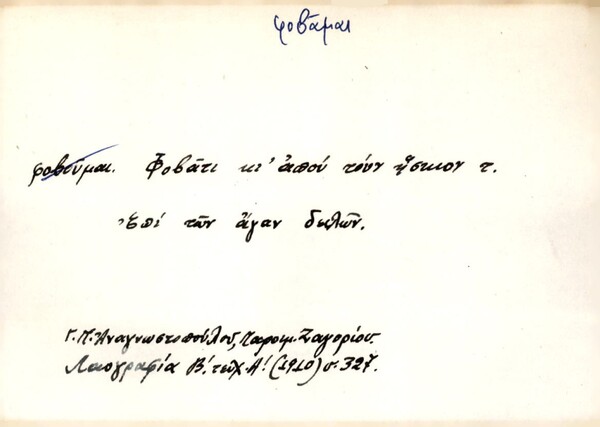 φοβᾶμαι
φοβοῦμαι. Φοβᾶτι κι' ἀπού τούν ἤσκιον τ.
Ἐπί τῶν ἄγαν δειλῶν.
Γ. Π. Ἀναγνωστοπούλου, Παροιμ. Ζαγορίου.
Λαογραφία Β΄. τεῦχ. Α΄. (1910) σ. 327.